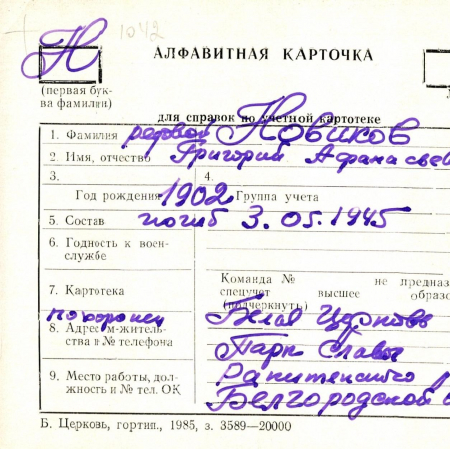 Н 1042
АЛФАВИТНАЯ КАРТОЧКА
(первая бук-
ва фамилии)
для справок по учетной картотеке
1. Фамилия рядовой Новиков
2. Имя, отчество Григорий Афанасьев
3. 4.
Год рождения 1902 Группа учета
5. Состав погиб 3.05.1945
6. Годность к воен-
службе
Команда № не предназ
7. Картотека спецучет высшее образо
(подчеркнуть)
похоронен Белая Церковь
8. Адрес м-житель-
ства и № телефона Парк Славы
9. Место работы, дол-
жность и № тел. ОК Ракитенского р
Белгородской о
Б. Церковь, гортип., 1985, з. 3589—20000